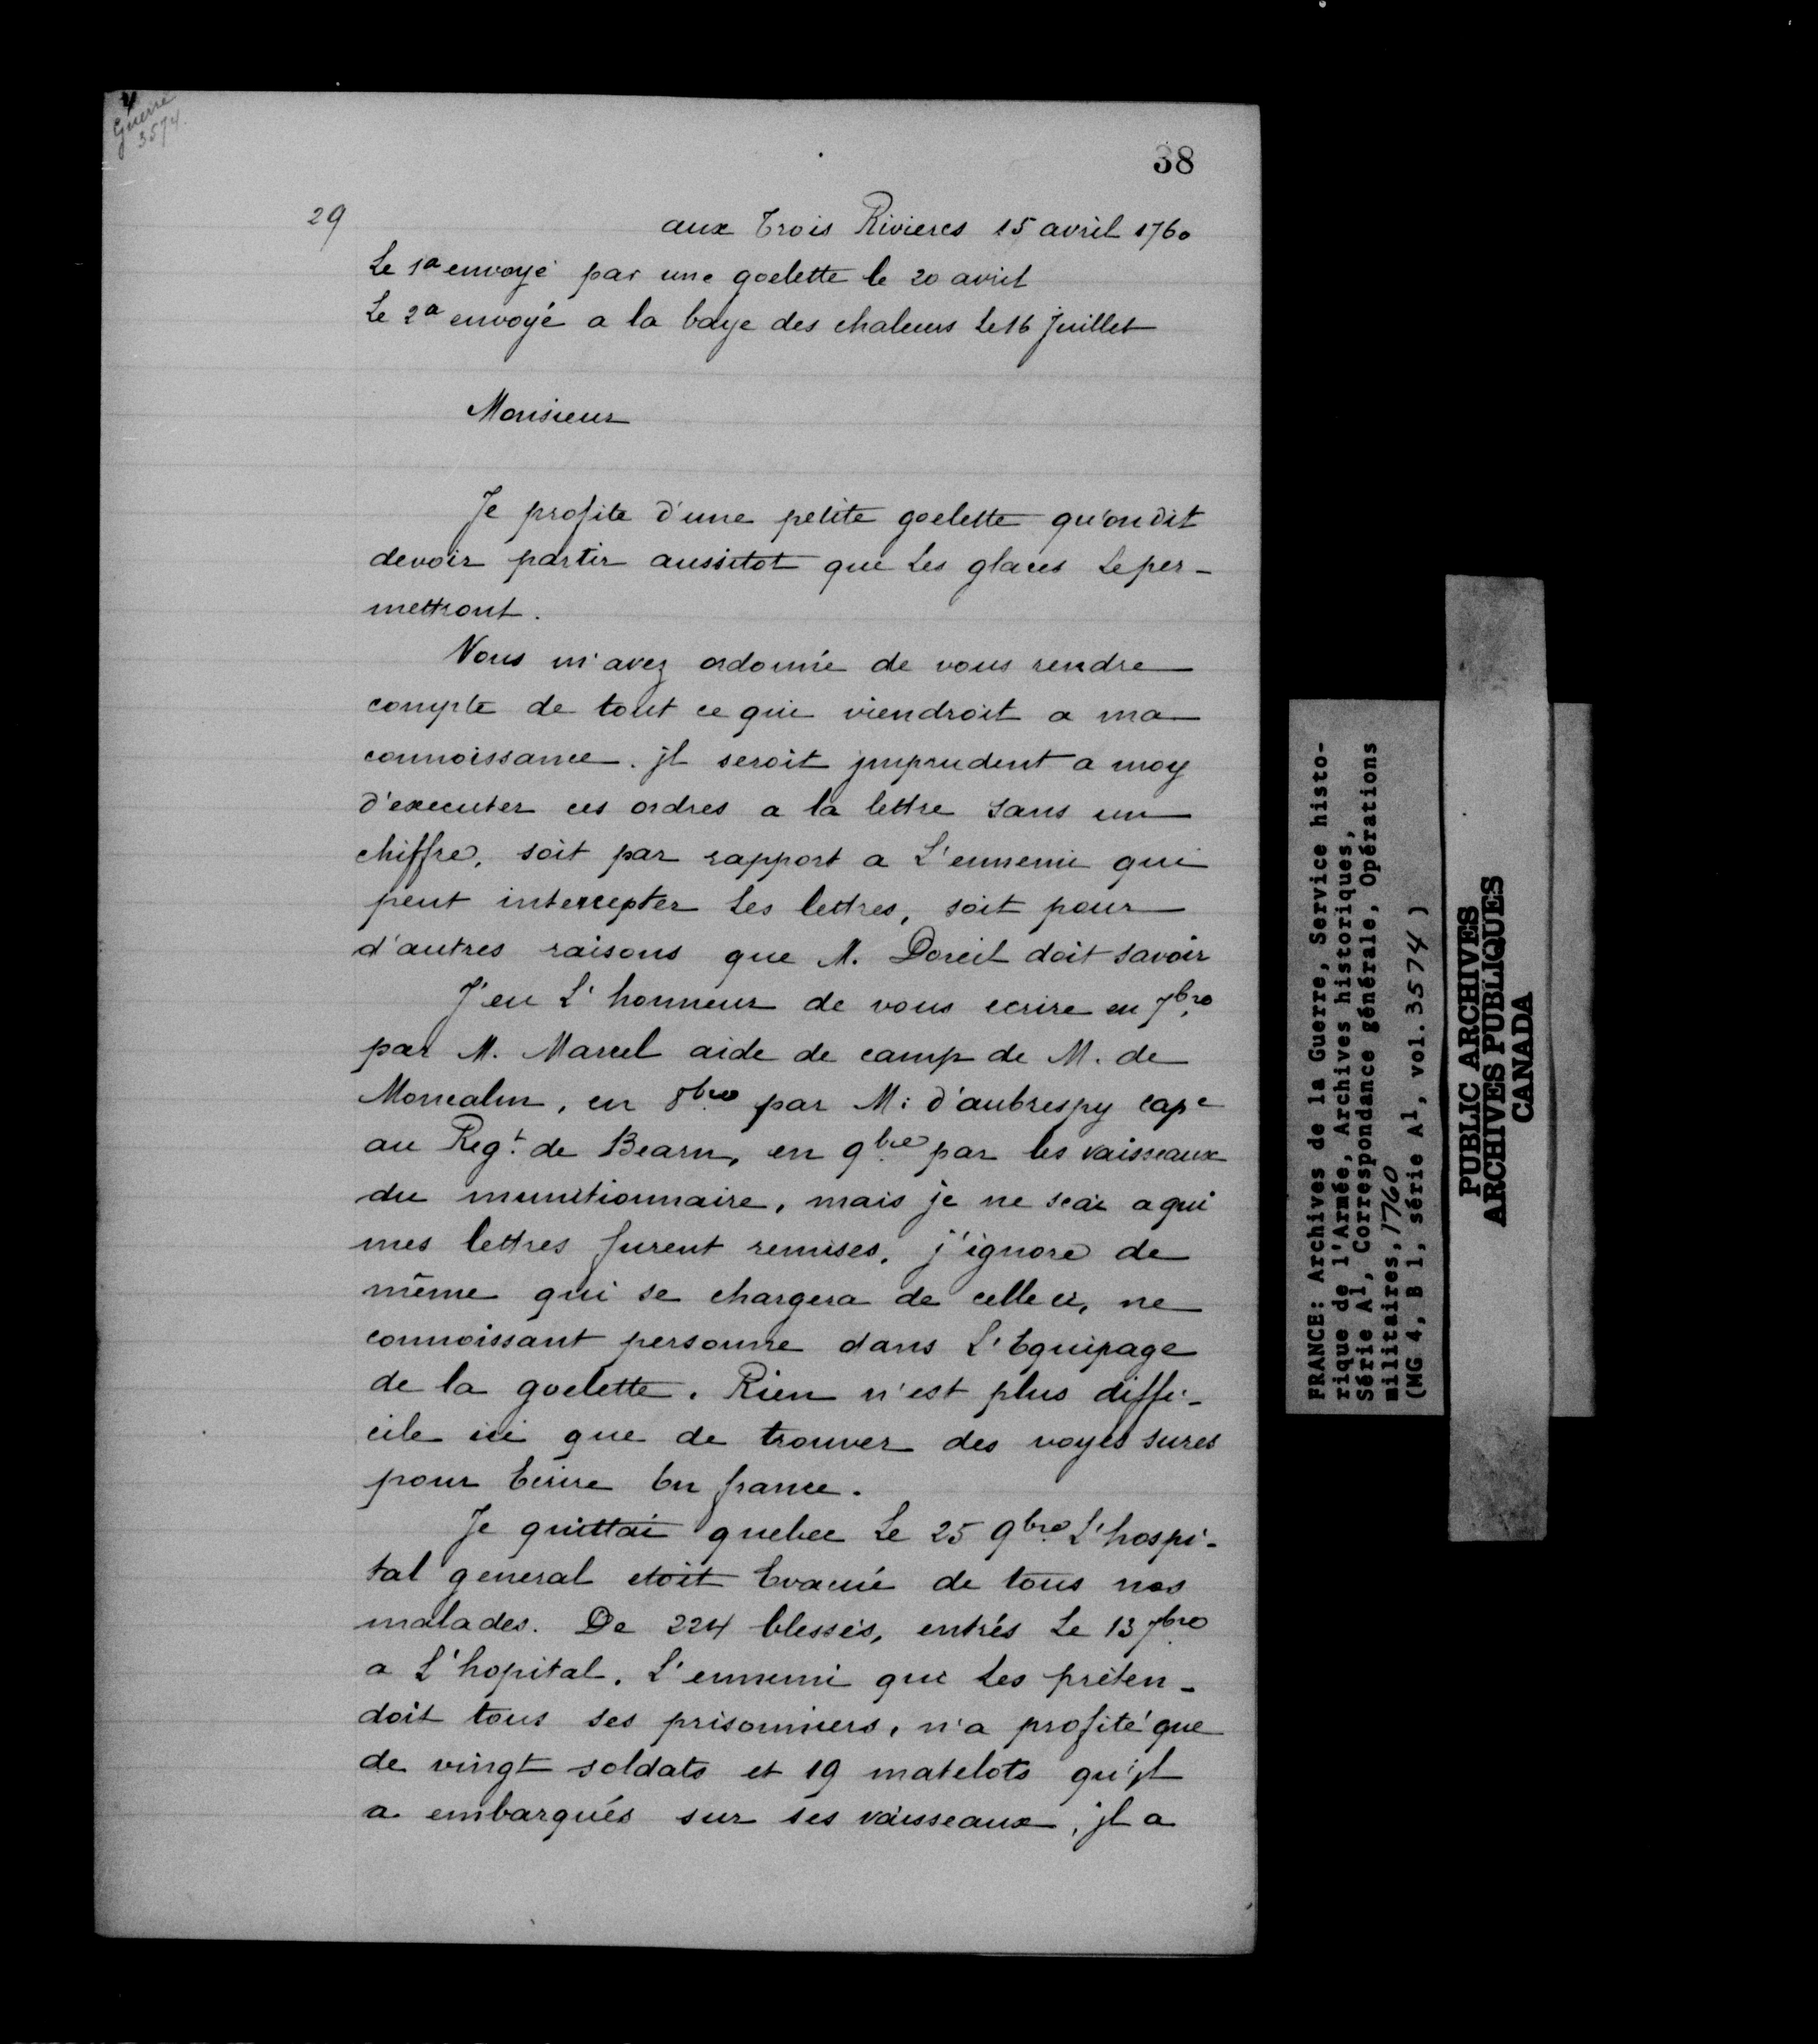 Guerre
3574.
38
29
aux Trois Rivieres 15 avril 1760
Le 1a envoyé par une goelette le 20 avril
Le 2a envoyé a la baye des chaleurs Le 16 Juillet
Monsieur
Je profite d'une petite goelette qu'on dit
devoir partir aussitot que Les glaces Le per-
mettront.
Vous m'avez ordonné de vous rendre
compte de tout ce qui viendroit a ma
connoissance. jl seroit jmprudent a moy
d'executer ces ordres a la lettre sans un
chiffre, soit par rapport a L'ennemi qui
peut intercepter Les lettres, soit pour
d'autres raisons que M. Doreil doit savoir
J'eu L'honneur de vous ecrire en 7bre
par M. Marcel aide de camp de M. de
Moncalm, en 8bre par M: d'aubrespy cape
au Regt. de Bearn, en 9bre par les vaisseaux
du munitionnaire, mais je ne scai a qui
mes lettres furent remises. j'ignore de
même qui se chargera de celle ci, ne
connoissant personne dans L'Equipage
de la goelette. Rien n'est plus diffi-
cile ici que de trouver des voyes sures
pour Ecrire En france.
Je quittai quebec Le 25 9bre L'hospi-
tal general etoit Evacué de tous nos
malades. De 224 blessés, entrés Le 13 7bre
a L'hopital. L'ennemi qui Les préten-
doit tous ses prisonniers, n'a profité que
de vingt soldats et 19 matelots qu'jl
a embarqués sur ses vaisseaux, jl a
FRANCE: Archives de la Guerre, Service histo-
rique de l'Armée, Archives historiques,
Série A1, Correspondance générale, Opérations
militaires, 1760
(MG 4, B 1, série A1, vol. 3574)
PUBLIC ARCHIVES
ARCHIVES PUBLIQUES
CANADA